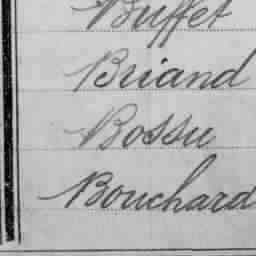 Buffet
Briand
Bossu
Bouchard